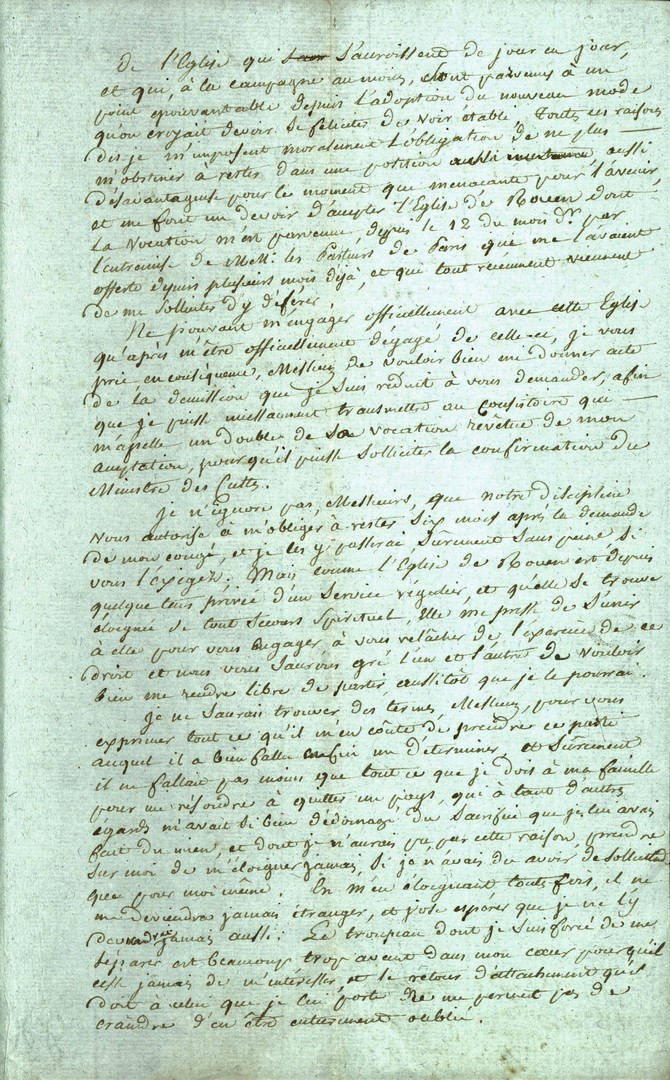 de l'Eglise qui s'accroissent de jour en jour,
et qui, à la campagne au moins, sont parvenus à un
point épouvantable depuis l'adoption du nouveau mode
qu'on croyait devoir se féliciter de voir établi. Toutes ces raisons
dis je m'imposent moralement l'obligation de ne plus
m'obstiner à rester dans une position aussi
désavantageuse pour le moment que menaçante pour l'avenir,
et me font un devoir d'accepter l'Eglise de Rouen dont
la vocation m'est parvenue, depuis le 12 du mois dr. par
l'entremise de Mess: les Pasteurs de Paris que me l'avaient
offerte depuis plusieurs mois déjà, et qui tout récemment viennent
de me solliciter d'y déférer.
Ne pouvant m'engager officiellement avec cette Eglise
qu'après m'être officiellement dégagé de celle-ci, je vous
prie en conséquence, Messieurs de vouloir bien me donner acte
de la démission que je suis réduit à vous demander, afin
que je puisse incessamment transmettre au consistoire qui
m'apelle un double de sa vocation revêtue de mon
acceptation, pour qu'il puisse solliciter la confirmation du
Ministre des Cultes.
Je n'ignore pas, Messieurs, que notre discipline
vous autorise à m'obliger à rester six mois après la demande
de mon congé, et je les y passerai surement sans peine si
vous l'exigez. Mais comme l'Eglise de Rouen est depuis
quelque tems privée d'un service régulier, et qu'elle se trouve
éloignée de tout secours spirituel, elle me presse de s'unir
à elle pour vous engager à vous relâcher de l'exercice de ce
droit et nous vous saurons gré l'un et l'autre de vouloir
bien me rendre libre de partir, aussitôt que je le pourrai.
Je ne saurais trouver des termes, Messieurs, pour vous
exprimer tout ce qu'il m'en coûte de prendre ce parti
auquel il a bien fallu enfin me déterminer, et sûrement
il ne fallait pas moins que tout ce que je dois à ma famille
pour me résoudre à quitter un pays, qui à tant d'autres
égards m'avait si bien dédomagé du sacrifice que je lui avais
fait du mien, et dont je n'aurais pu par cette raison, prendre
sur moi de m'éloigner jamais, si je n'avais du avoir de sollicitude
que pour moi même. En m'en éloignant toutefois, il ne
me deviendra jamais étranger, et j'ose espérer que je ne l'y
deviendrai jamais aussi: Le troupeau dont je suis forcé de me
séparer est beaucoup trop avant dans mon cœur pour qu'il
cesse jamais de m'intéresser, et le retour d'attachement qu'il
doit à celui que je lui porte ne me permet pas de
craindre d'en être entièrement oublié.